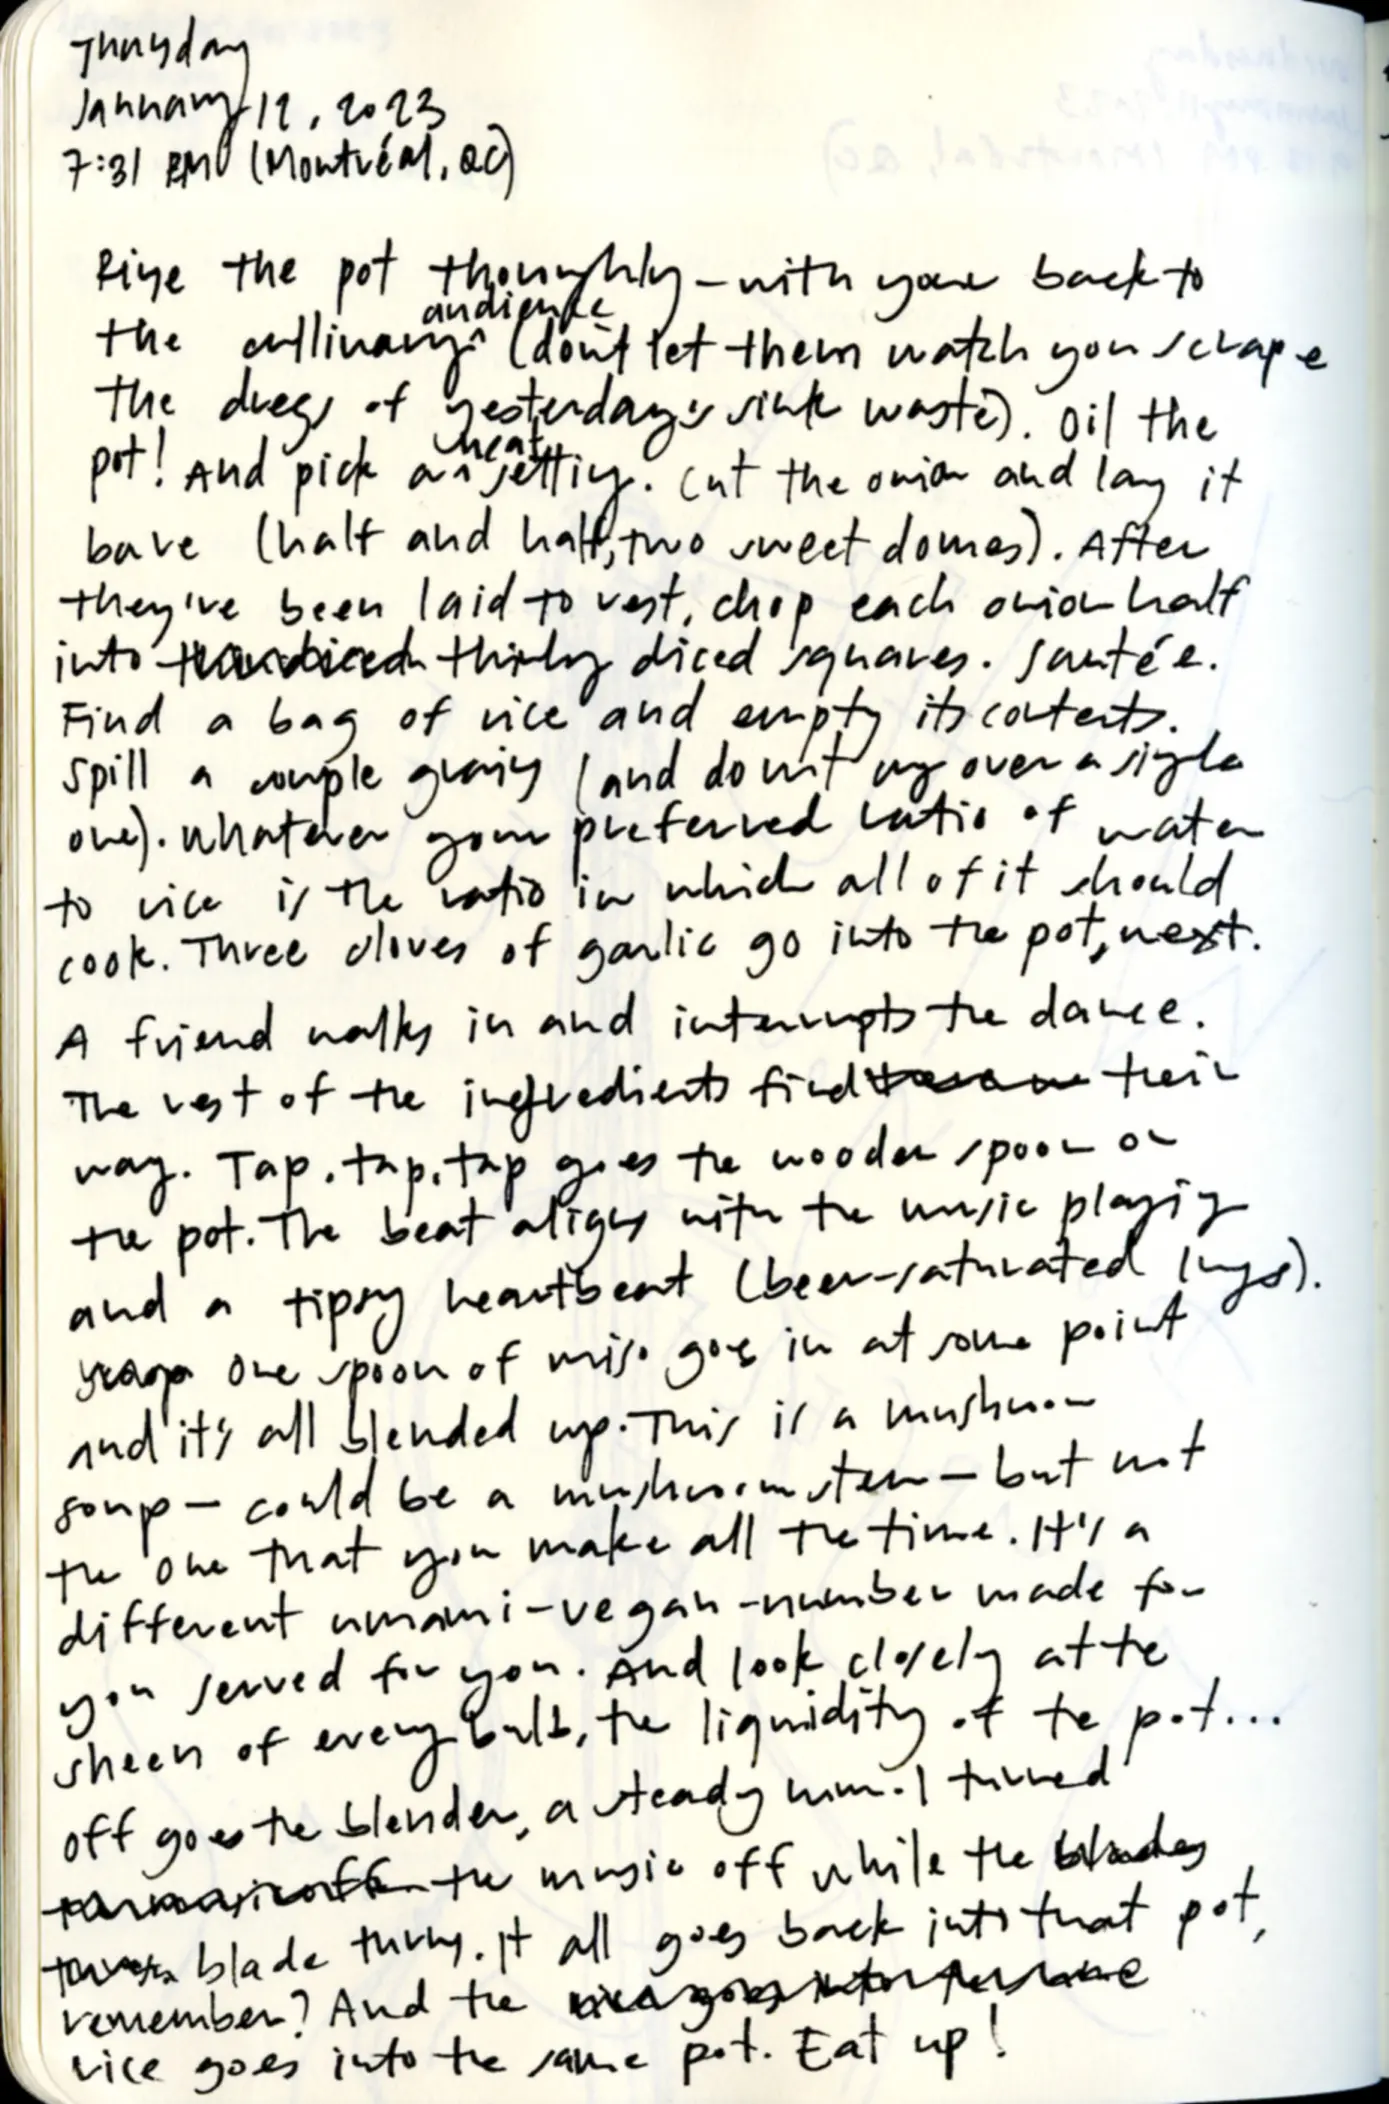 Thursday
January 12, 2023
7:31 PM (Montréal, QC)
Rinse the pot thoroughly – with your back to
audience
the cullinary ^ (don't let them watch you scrape
the dregs of yesterday's sink waste). Oil the
heat
pot! And pick a ^ setting. Cut the onion and lay it
bare (half and half, two sweet domes). After
they've been laid to rest, chop each onion half
into thinly diced squares. Sautée.
Find a bag of rice and empty its contents.
Spill a couple grains (and do not cry over a single
one). Whatever your preferred ratio of water
to rice is the ratio in which all of it should
cook. Three cloves of garlic go into the pot, next.
A friend walks in and interrupts the dance.
The rest of the ingredients find their
way. Tap, tap, tap goes the wooden spoon on
the pot. The beat aligns with the music playing
and a tipsy heartbeat (beer-saturated lungs).
One spoon of miso goes in at some point
and it's all blended up. This is a mushroom
soup – could be a mushroom stew – but not
the one that you make all the time. It's a
different umami-vegan-number made for
you served for you. And look closely at the
sheen of every bulb, the liquidity of the pot...
off goes the blender, a steady hum. I turned
the music off while the
blade turns. It all goes back into that pot,
remember? And the
rice goes into the same pot. Eat up!